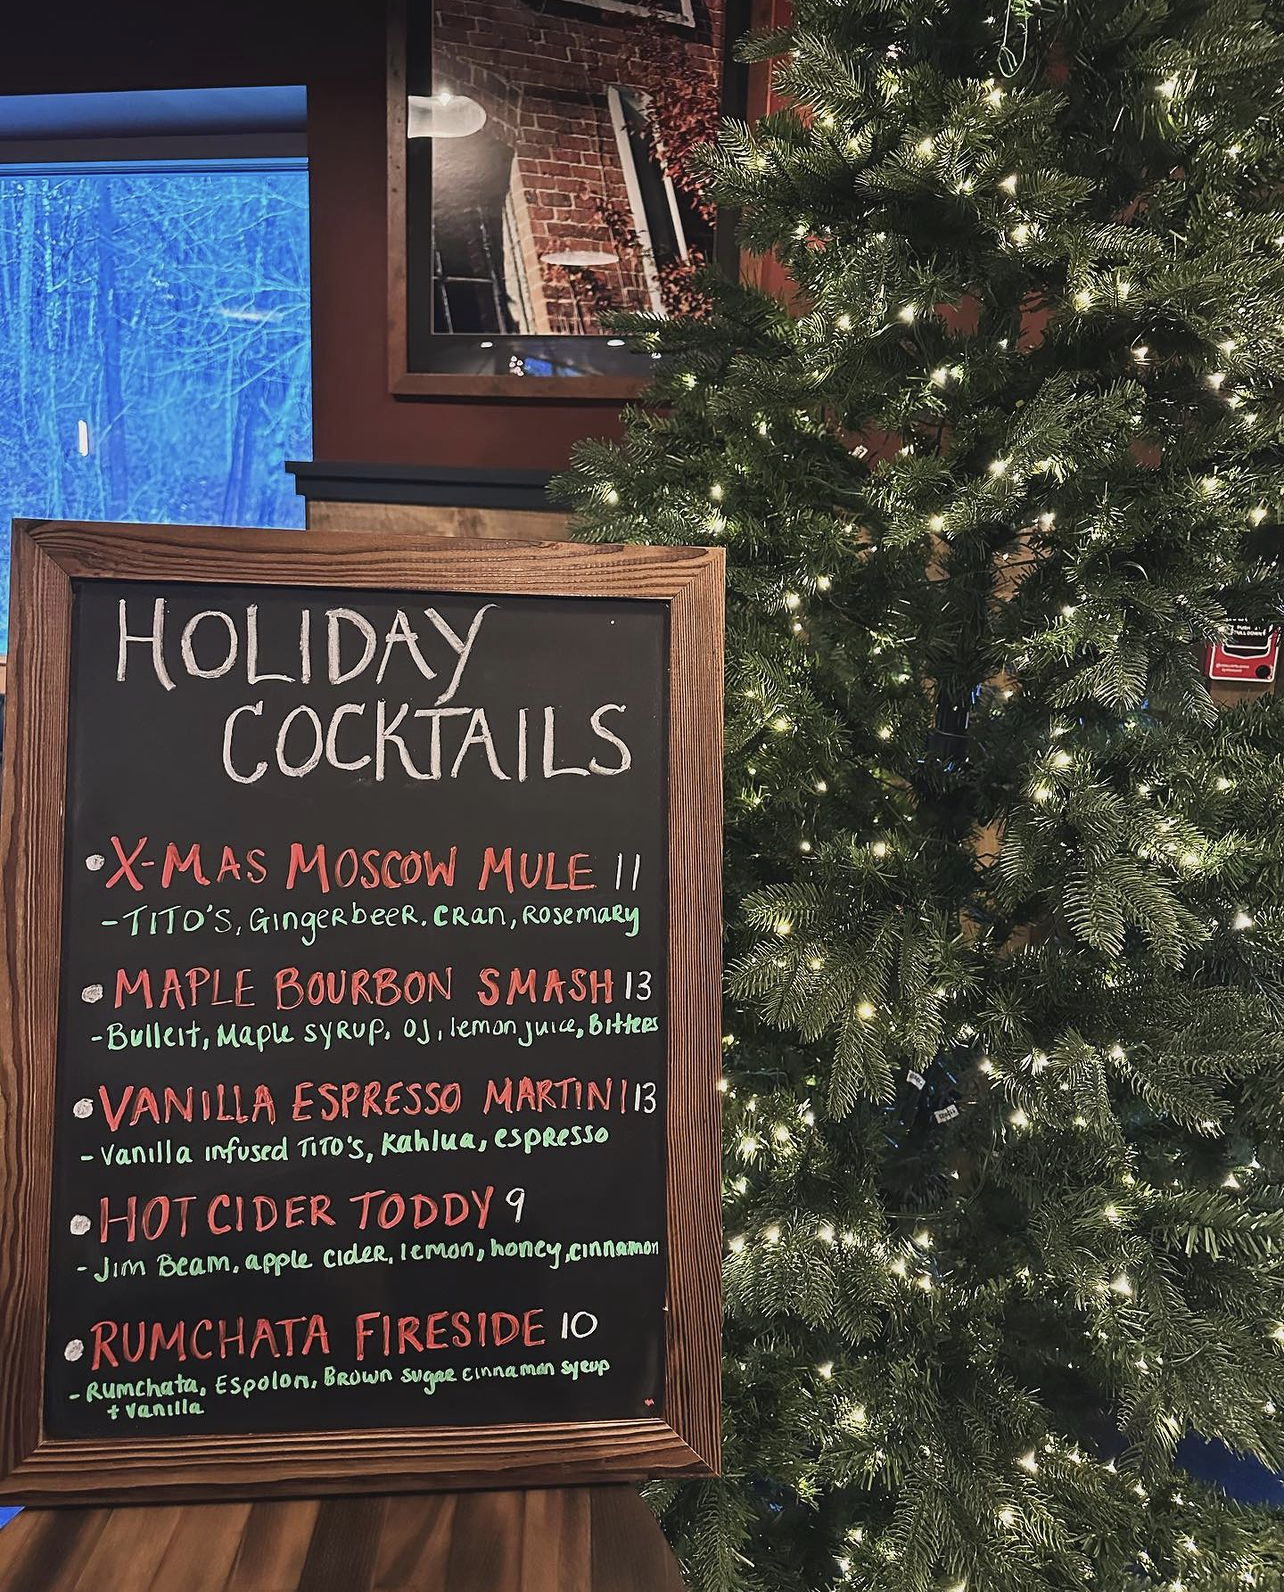 HOLIDAY
COCKTAILS
X-MAS MOSCOW MULE 11
-TITO'S, Gingerbeer. Cran, Rosemary
MAPLE BOURBON SMASH 13
-Bulleit, Maple syrup, OJ, lemon juice, Bitters
VANILLA ESPRESSO MARTINI 13
-Vanilla infused Tito's, Kahlua, espresso
HOT CIDER TODDY 9
-Jim Beam, apple cider, lemon, honey, cinnamon
RUMCHATA FIRESIDE 10
-Rumchata, Espolon, Brown sugar cinnamon syrup
+ vanilla
PULL DOWN